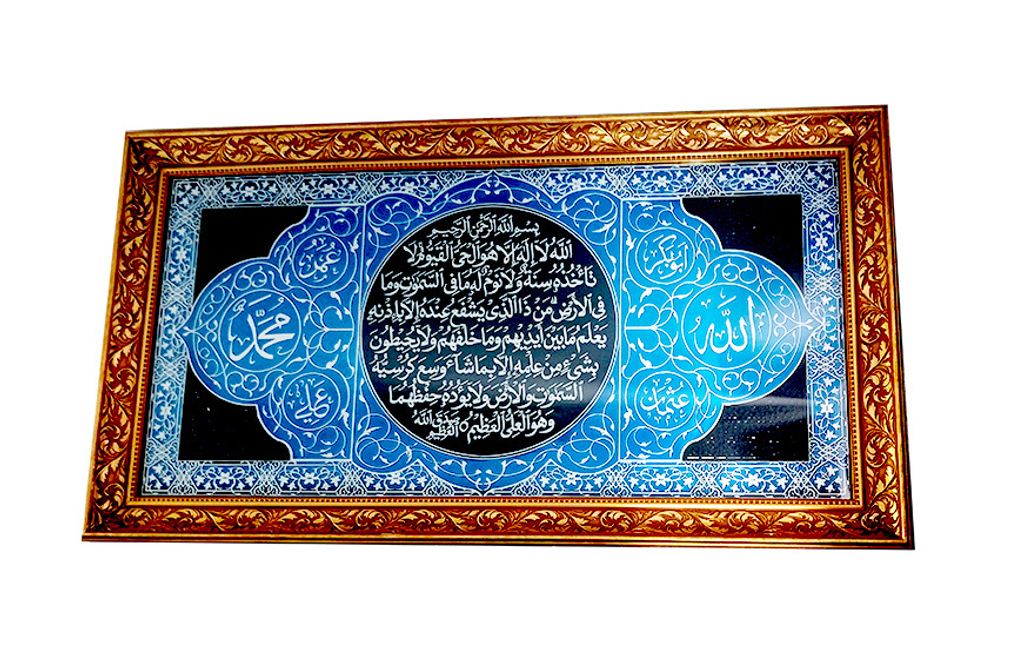 بِسْمِ ٱللَّهِ ٱلرَّحْمَٰنِ ٱلرَّحِيمِ
ٱللَّهُ لَا إِلَٰهَ إِلَّا هُوَ ٱلْحَىُّ ٱلْقَيُّومُ لَا
تَأْخُذُهُ سِنَةٌ وَلَا نَوْمٌ لَهُ مَا فِى ٱلسَّمَٰوَٰتِ وَمَا
فِى ٱلْأَرْضِ مَنْ ذَا ٱلَّذِى يَشْفَعُ عِنْدَهُ إِلَّا بِإِذْنِهِ
يَعْلَمُ مَا بَيْنَ أَيْدِيهِمْ وَمَا خَلْفَهُمْ وَلَا يُحِيطُونَ
بِشَىْءٍ مِنْ عِلْمِهِ إِلَّا بِمَا شَاءَ وَسِعَ كُرْسِيُّهُ
ٱلسَّمَٰوَٰتِ وَٱلْأَرْضَ وَلَا يَؤُدُهُ حِفْظُهُمَا
وَهُوَ ٱلْعَلِىُّ ٱلْعَظِيمُ صَدَقَ ٱللَّهُ ٱلْعَظِيمُ
أبو بكر
الله
عثمن
عمر
محمد
علي